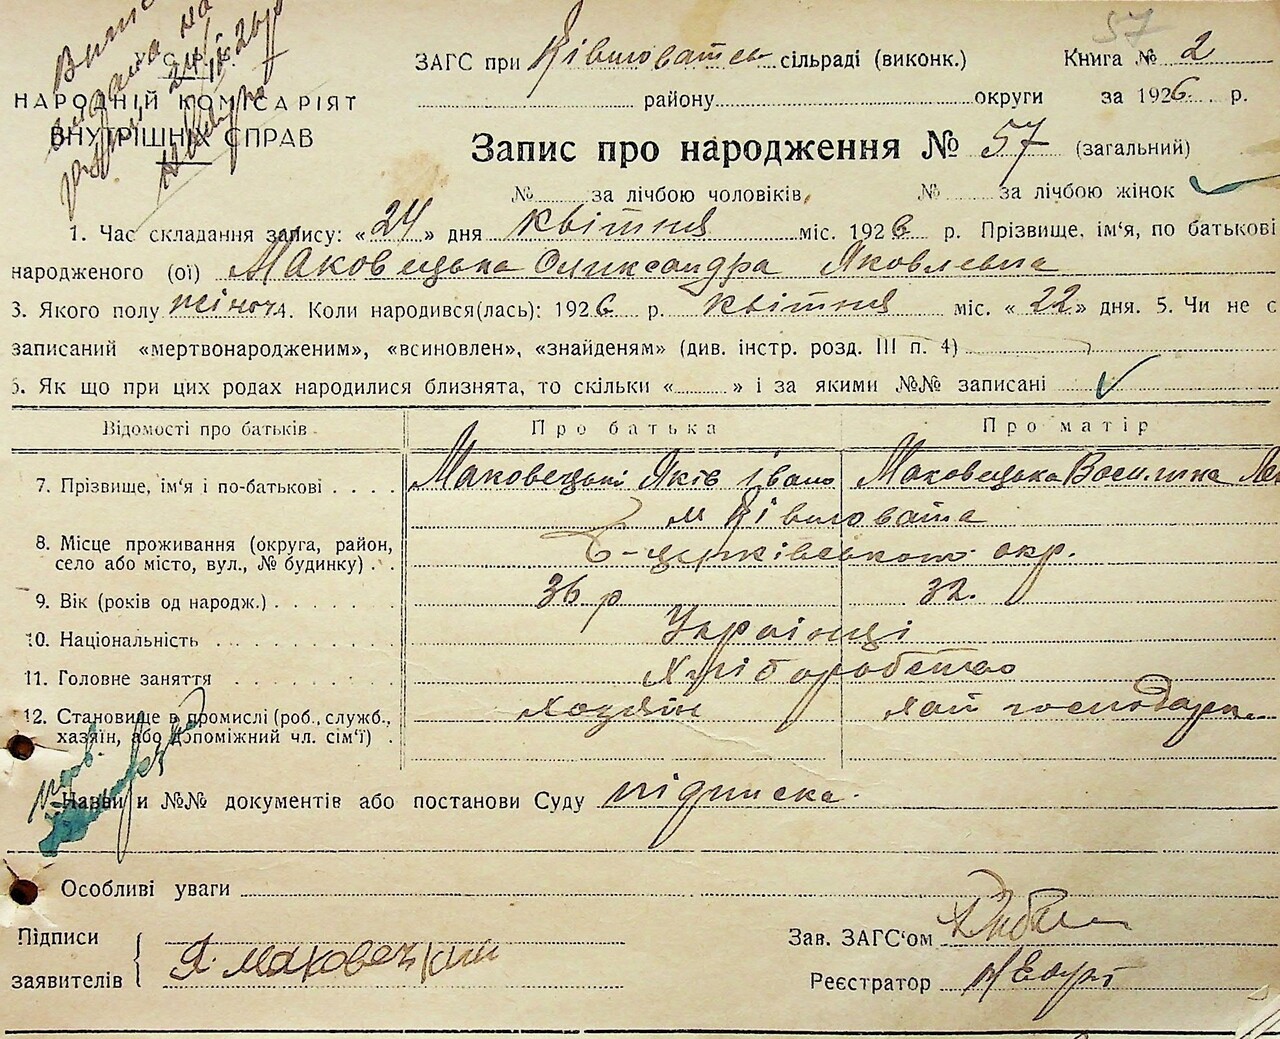 57
У.С.Р.Р.
НАРОДНІЙ КОМІСАРІЯТ
ВНУТРІШНІХ СПРАВ
ЗАГС при Ківшоватськ сільраді (виконк.) Книга № 2
району округи за 1926 р.
Запис про народження № 57 (загальний)
№ за лічбою чоловіків, № за лічбою жінок
1. Час складання запису: «24» дня квітня міс. 1926 р. Прізвище, ім'я, по батькові
народженого (ої) Маковецька Олександра Яковлевна
3. Якого полу жіноч 4. Коли народився(лась): 1926 р. квітня міс. «22» дня. 5. Чи не є
записаний «мертвонародженим», «всиновлен», «знайденям» (див. інстр. розд. III п. 4)
6. Як що при цих родах народилися близнята, то скільки « » і за якими №№ записані
Відомості про батьків Про батька Про матір
7. Прізвище, ім'я і по-батькові Маковецькі Яків Івано Маковецька Василина
м Ківшовата
8. Місце проживання (округа, район,
село або місто, вул., № будинку) Б-церківськот окр.
9. Вік (років од народж.) 36 р 32.
10. Національність Українці
11. Головне заняття Хліборобство
12. Становище в промислі (роб., служб.,
хазяїн, або допоміжний чл. сім'ї) хозяїн господар
Назви и №№ документів або постанови Суду підписка.
Особливі уваги
Підписи
заявителів Я. Маковецкий
Зав. ЗАГС'ом
Реєстратор